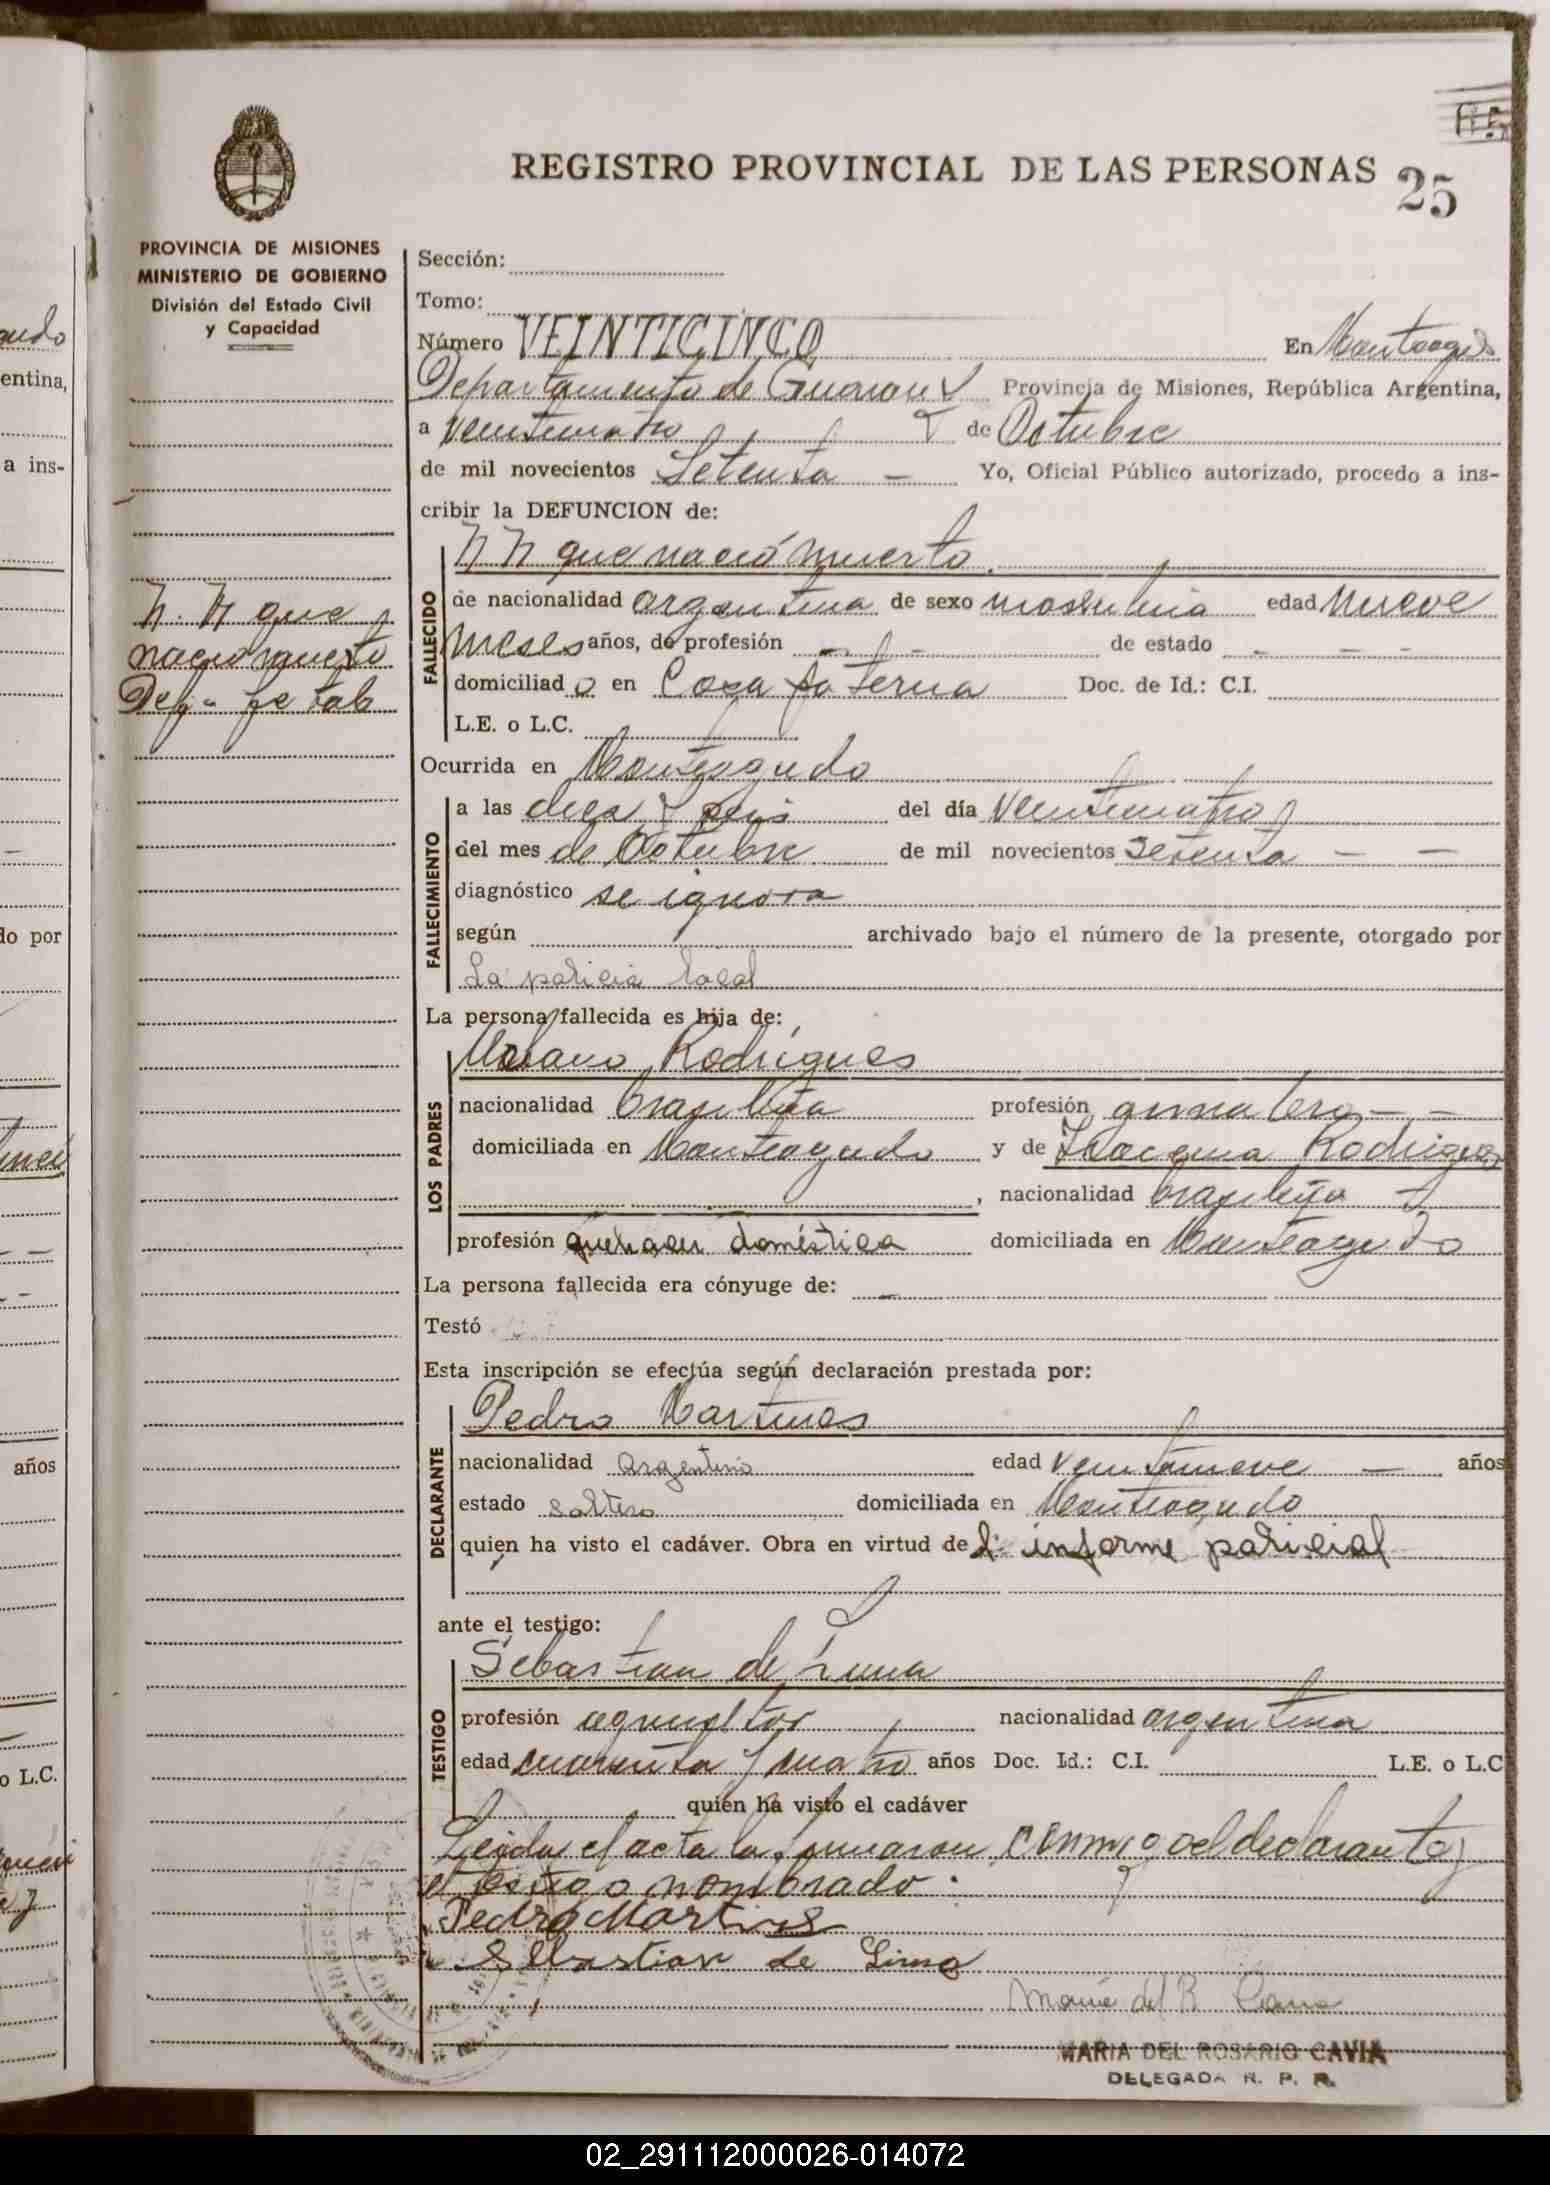 REGISTRO PROVINCIAL DE LAS PERSONAS 25
PROVINCIA DE MISIONES
MINISTERIO DE GOBIERNO
División del Estado Civil
y Capacidad
N. N que
nacio muerto
Def. fetal
Sección:
Tomo:
Número VEINTICINCO En Monteagudo
Departamento de Guaraní Provincia de Misiones, República Argentina,
a veinticuatro de Octubre
de mil novecientos Setenta — Yo, Oficial Público autorizado, procedo a ins-
cribir la DEFUNCION de:
N N que nació muerto.
FALLECIDO
de nacionalidad argentina de sexo masculino edad nueve
meses años, de profesión - - de estado - - -
domiciliado en Casa paterna Doc. de Id.: C.I.
L.E. o L.C.
Ocurrida en Monteagudo
FALLECIMIENTO
a las diez y seis del día veinticuatro
del mes de Octubre de mil novecientos setenta - -
diagnóstico se ignora
según archivado bajo el número de la presente, otorgado por
La policia local
La persona fallecida es hija de:
LOS PADRES
Rodrigues
nacionalidad brasileña profesión - -
domiciliada en Monteagudo y de Rodrigues
, nacionalidad brasileña -
profesión quehacer doméstica domiciliada en Monteagudo
La persona fallecida era cónyuge de: -
Testó
Esta inscripción se efectúa según declaración prestada por:
DECLARANTE
Pedro Martines
nacionalidad argentino edad veintinueve — años
estado soltero domiciliada en Monteagudo
quien ha visto el cadáver. Obra en virtud de informe policial
ante el testigo:
TESTIGO
Sebastian de Lima
profesión agricultor nacionalidad argentina
edad cuarenta y cuatro años Doc. Id.: C.I. L.E. o L.C
quien ha visto el cadáver
Leida el acta la firmaron conmigo el declarante y
el testigo nombrado.
Pedro Martines
Sebastian de Lima
Maria del R. Cavia
MARIA DEL ROSARIO CAVIA
DELEGADA R. P. P.
02_291112000026-014072